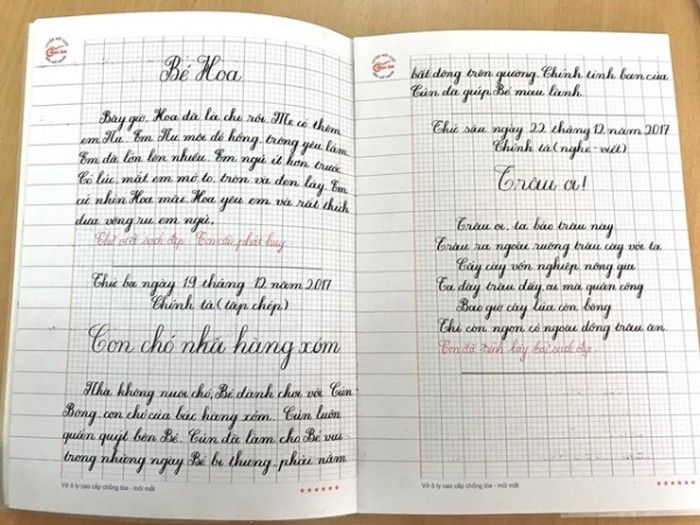 Bé Hoa
Bây giờ, Hoa đã là chị rồi. Mẹ có thêm
em Nụ. Em Nụ môi đỏ hồng, trông yêu lắm.
Em đã lớn lên nhiều. Em ngủ ít hơn trước.
Có lúc, mắt em mở to, tròn và đen láy. Em
cứ nhìn Hoa mãi. Hoa yêu em và rất thích
đưa võng ru em ngủ.
Chữ viết sạch đẹp. Con cần phát huy
Thứ ba ngày 19 tháng 12 năm 2017
Chính tả (tập chép)
Con chó nhà hàng xóm
Nhà không nuôi chó, Bé đành chơi với Cún
Bông, con chó của bác hàng xóm. Cún luôn
quấn quýt bên Bé. Cún đã làm cho Bé vui
trong những ngày Bé bị thương, phải nằm
Vở ô ly cao cấp chống lóa - mỏi mắt
bất động trên giường. Chính tình bạn của
Cún đã giúp Bé mau lành.
Thứ sáu ngày 22 tháng 12 năm 2017
Chính tả (nghe - viết)
Trâu ơi!
Trâu ơi, ta bảo trâu này
Trâu ra ngoài ruộng trâu cày với ta.
Cấy cày vốn nghiệp nông gia
Ta đây trâu đấy, ai mà quản công
Bao giờ cây lúa còn bông
Thì còn ngọn cỏ ngoài đồng trâu ăn.
Con đã trình bày bài sạch đẹp.